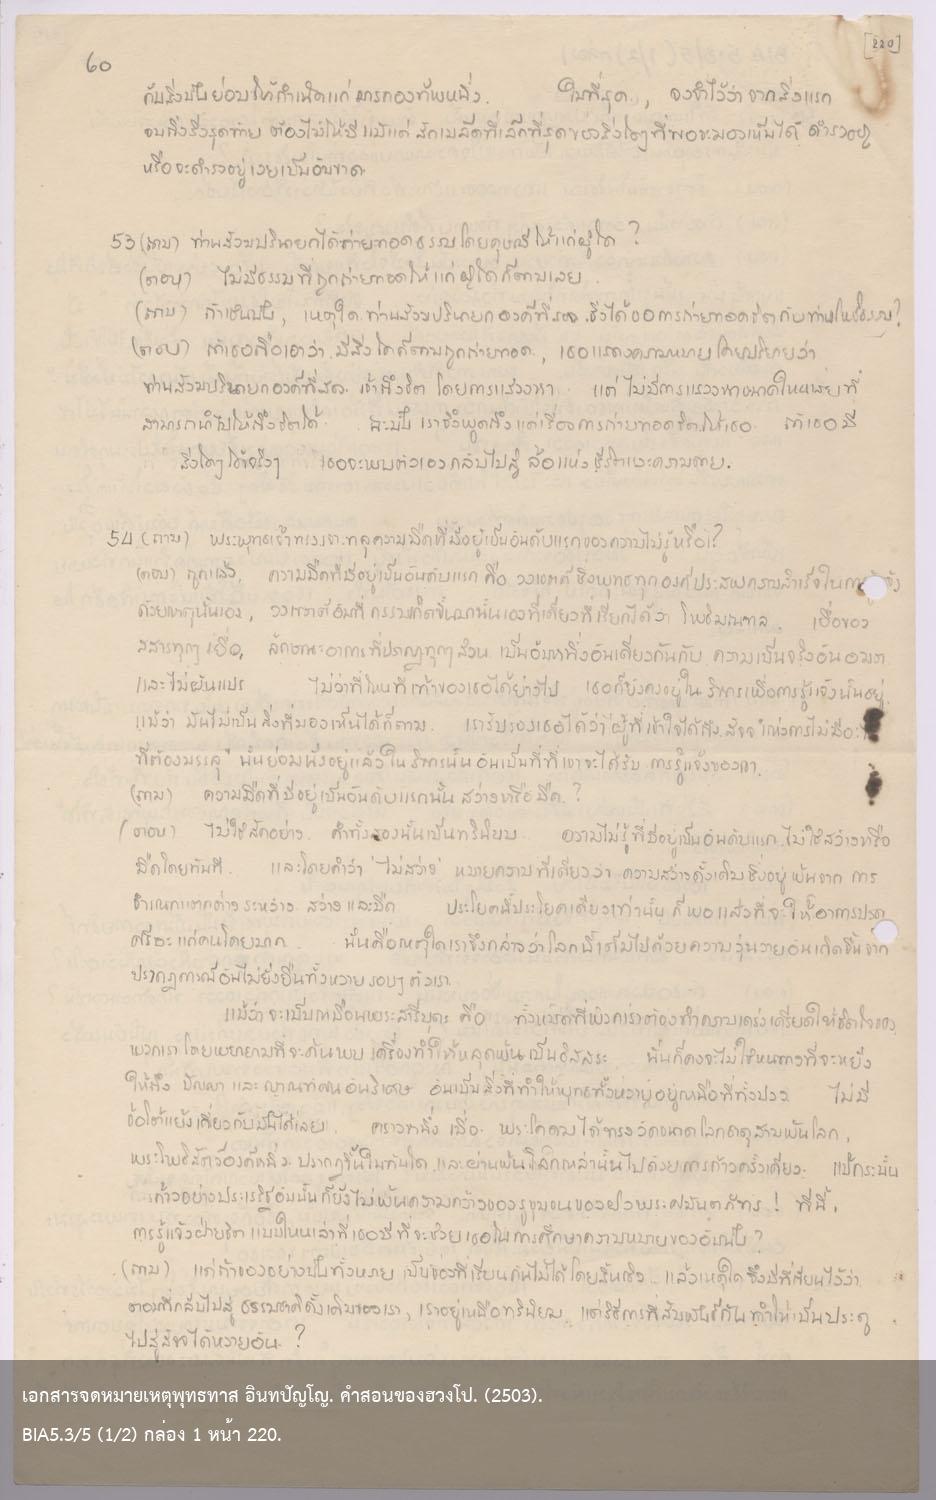 60
[220]
กับสิ่งนั้นย่อมให้กำเนิดแก่ มารกองทัพหนึ่ง. ในที่สุด, จงจำไว้ว่า จากสิ่งแรก
จนถึงสิ่งสุดท้าย ต้องไม่ให้มี แม้แต่ สักเมล็ดที่เล็กที่สุด ของสิ่งใดๆ ที่พอจะมองเห็นได้ ดำรงอยู่
หรือจะดำรงอยู่เลยเป็นอันขาด.
53 (ถาม) ท่านสังฆปริณายกได้ถ่ายทอดธรรมโดยดุษณี ให้แก่ผู้ใด ?
(ตอบ) ไม่มีธรรมที่ถูกถ่ายทอดให้แก่ ผู้ใดก็ตามเลย.
(ถาม) ถ้าเช่นนั้น, เหตุใด ท่านสังฆปริณายก องค์ที่สอง จึงได้ขอการถ่ายทอดจิตกับท่านโพธิธรรม?
(ตอบ) ถ้าเธอถือเอาว่า มีสิ่งใดก็ตามถูกถ่ายทอด, เธอแสดงความหมาย โดยปริยายว่า
ท่านสังฆปริณายกองค์ที่สอง เข้าถึงจิต โดยการแสวงหา แต่ ไม่มีการแสวงหาขนาดไหนหมดที่
สามารถนำไปให้ถึงจิตได้ ฉะนั้น เราจึงพูดถึงแต่เรื่อง การถ่ายทอดจิตให้เธอ ถ้าเธอมี
สิ่งใดๆ ได้จริงๆ เธอจะพบตัวเองกลับไปสู่ ล้อแห่ง ชีวิตและความตาย.
54 (ถาม) พระพุทธเจ้าทรงเจาะทะลุความมืดที่มีอยู่เป็นอันดับแรกของความไม่รู้หรือ?
(ตอบ) ถูกแล้ว, ความมืดที่มีอยู่เป็นอันดับแรก คือ วงเขตต์ ซึ่งพุทธทุกองค์ประสพความสำเร็จในการรู้แจ้ง
ด้วยเหตุนั้นเอง, วงเขตต์อันที่ กรรมเกิดขึ้นมานั้นเองทีเดียวที่เรียกได้ว่า โพธิมณฑล. เยื่อของ
สสารทุกๆ เยื่อ, ลักษณะอาการที่ปรากฏทุกๆ ส่วน เป็นอันหนึ่งอันเดียวกันกับ ความเป็นจริงอันอมตะ
และไม่ผันแปร ไม่ว่าที่ไหนที่เท้าของเธอได้ย่างไป เธอก็ยังคงอยู่ใน วิหารเพื่อการรู้แจ้งนั้นอยู่.
แม้ว่า มันไม่เป็นสิ่งที่มองเห็นได้ก็ตาม. เรารับรองเธอได้ว่า "ผู้ที่เข้าใจได้ถึง สัจจะแห่งการไม่มีอะไร
ที่ต้องบรรลุ" นั้นย่อมนั่งอยู่แล้วในวิหารนั้น อันเป็นที่ที่เขาจะได้รับ การรู้แจ้งของเขา.
(ถาม) ความมืดที่มีอยู่เป็นอันดับแรกนั้น สว่างหรือมืด. ?
(ตอบ) ไม่ใช่สักอย่าง. คำทั้งสองนั้นเป็นทวินิยม. ความไม่รู้ที่มีอยู่เป็นอันดับแรก ไม่ใช่สว่างหรือ
มืดโดยทันที. และโดยคำว่า 'ไม่สว่าง' หมายความทีเดียวว่า ความสว่างดั้งเดิม ซึ่งอยู่พ้นจาก การ
จำแนกแตกต่าง ระหว่าง สว่าง และมืด ประโยคนี้ประโยคเดียวเท่านั้น ก็พอแล้วที่จะให้อาการปวด
ศรีษะแก่คนโดยมาก. นั่นคือเหตุใดเราจึงกล่าวว่าโลกนี้เต็มไปด้วยความวุ่นวายอันเกิดขึ้นจาก
ปรากฏการณ์อันไม่ยั่งยืนทั้งหลาย รอบๆ ตัวเรา.
แม้ว่าจะเป็นเหมือนพระสารีบุตร คือ ทั้งหมดที่พวกเราต้องทำความเคร่งเครียดให้จิตใจของ
พวกเรา โดยพยายามที่จะค้นพบ เครื่องทำให้หลุดพ้นเป็นอิสสระ นั่นก็คงจะไม่ใช่หนทางที่จะหยั่ง
ให้ถึง ปัญญา และญาณทัสนะอันวิเศษ อันเป็นสิ่งที่ทำให้พุทธทั้งหลายอยู่เหนือที่ทั้งปวง ไม่มี
ข้อโต้แย้งเกี่ยวกับอันนี้ได้เลย. คราวหนึ่ง เมื่อ พระโคดมได้ทรงวัดขนาดโลกธาตุสามพันโลก,
พระโพธิสัตว์องค์หนึ่ง ปรากฏขึ้นในทันใด และผ่านพ้นโลกเหล่านั้นไปด้วยการก้าวครั้งเดียว. แม้กระนั้น
ก้าวอย่างประเสริฐอันนั้นก็ยังไม่พ้นความกว้างของรูขุมขนของฝ่าพระสมันตภัทร ! ทีนี้,
การรู้แจ้งฝ่ายจิต แบบไหนเล่าที่เธอมีที่จะช่วยเธอในการศึกษาความหมายของอันนั้น ?
(ถาม) แต่ถ้าของอย่างนั้นทั้งหลาย เป็นของที่เรียนกันไม่ได้โดยสิ้นเชิง แล้วเหตุใด จึงมีที่เขียนไว้ว่า
ตอนที่กลับไปสู่ ธรรมชาติดั้งเดิมของเรา, เราอยู่เหนือทวินิยม. แต่วิธีการที่สัมพันธ์กัน ทำให้เป็นประตู
ไปสู่สัจจ์ได้หลายอัน. ?
เอกสารจดหมายเหตุพุทธทาส อินทปัญโญ. คำสอนของฮวงโป. (2503).
BIA5.3/5 (1/2) กล่อง 1 หน้า 220.